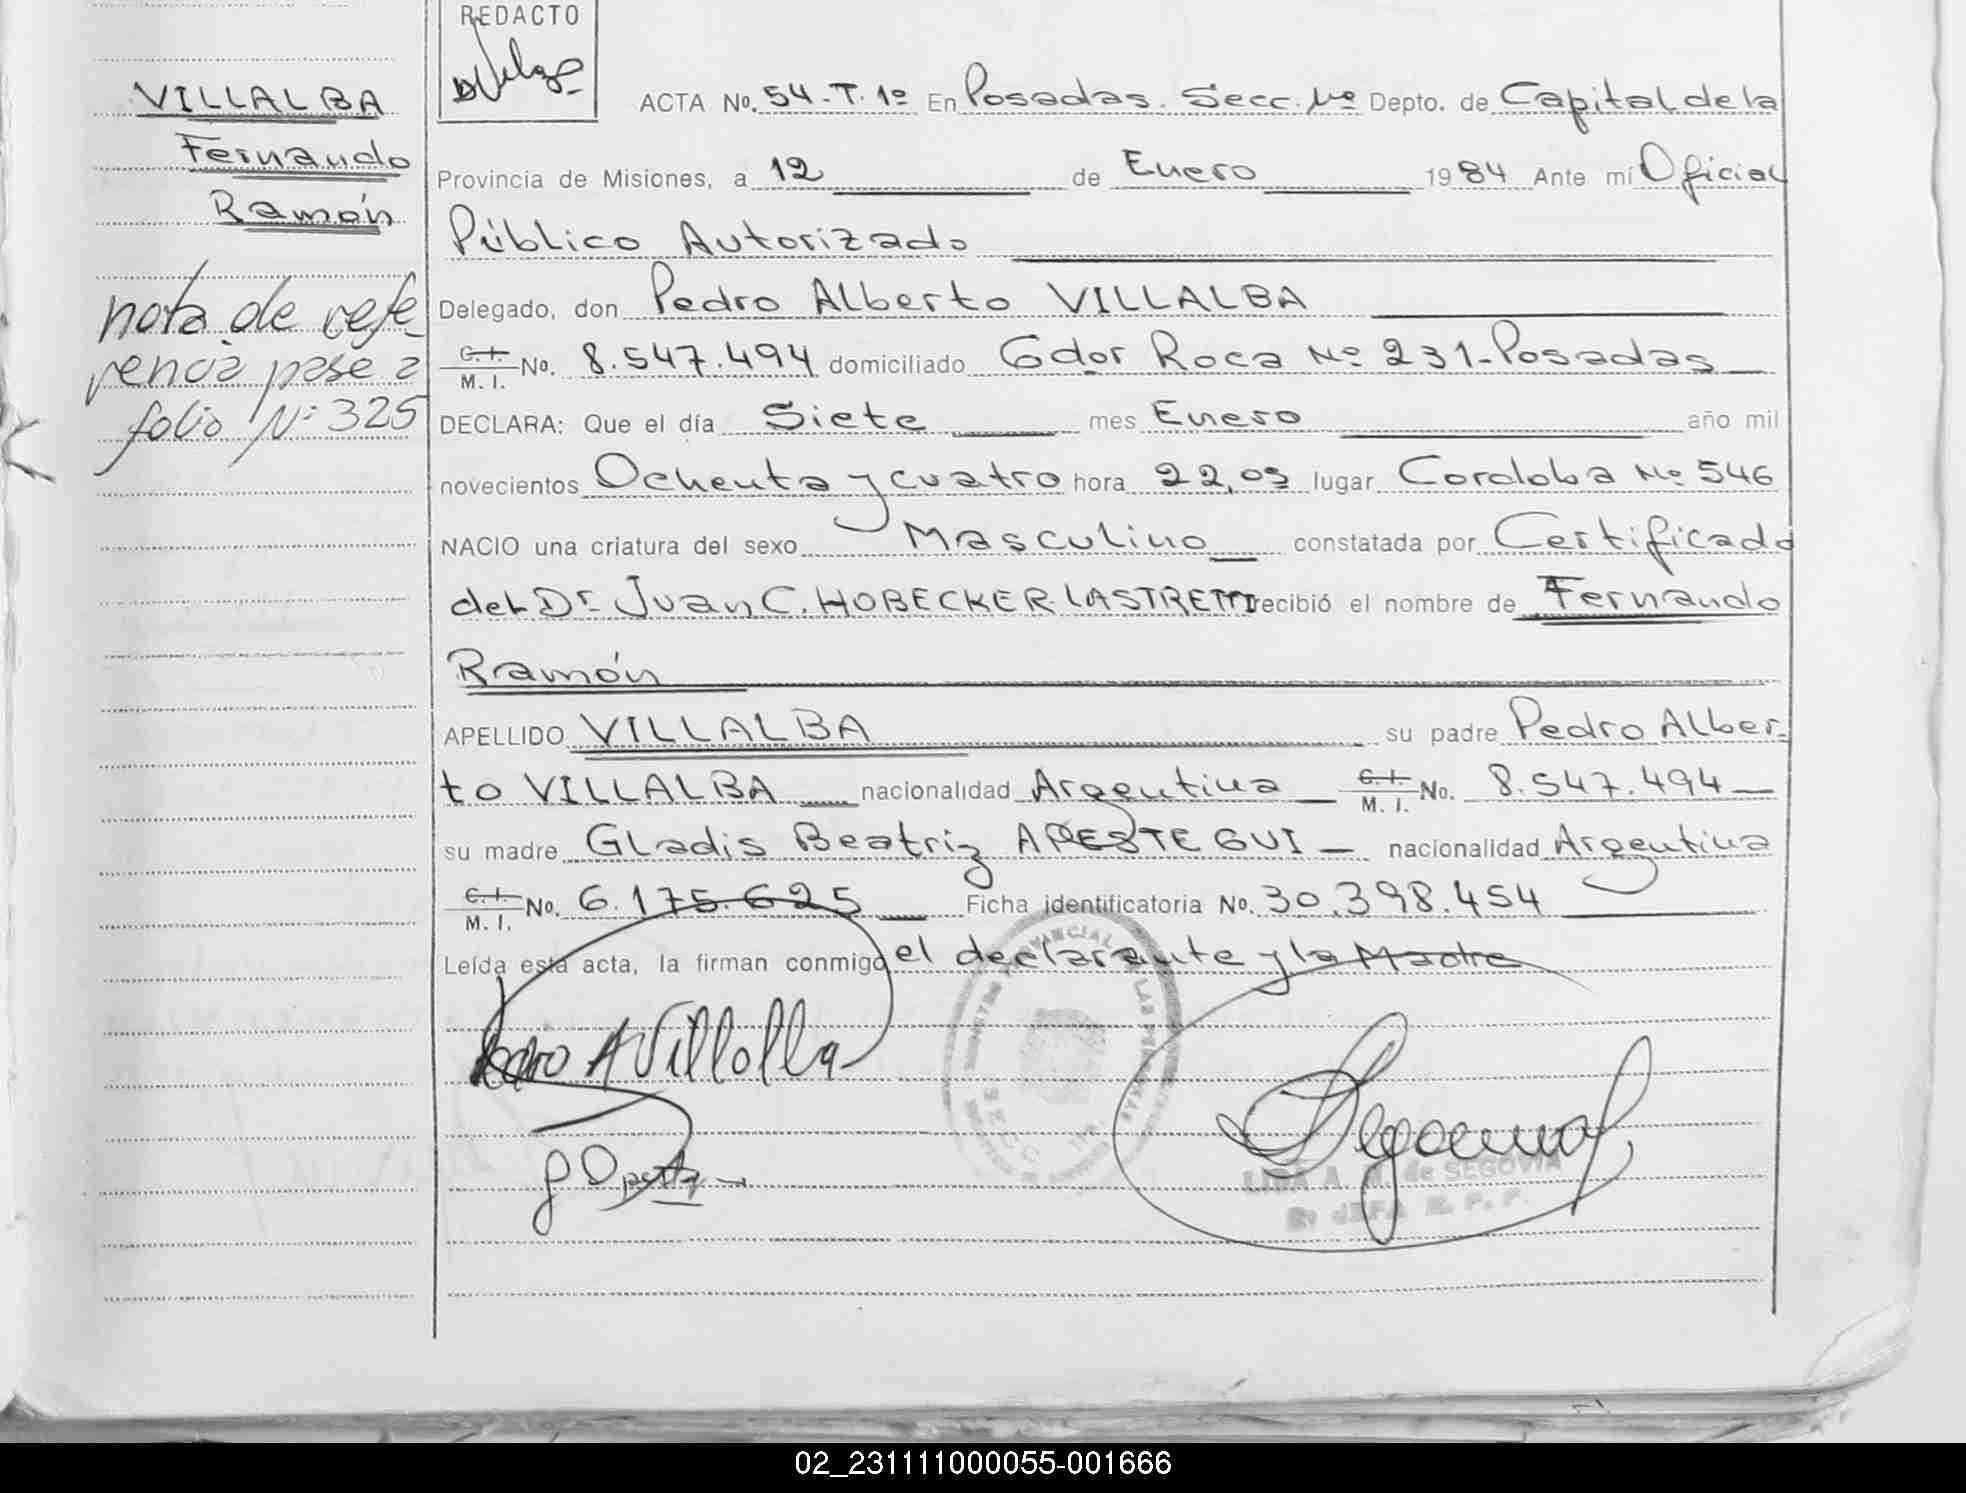 REDACTO
VILLALBA
Fernando
Ramón
nota de refe-
rencia pase a
folio Nº 325
ACTA No. 54. T. 1º En Posadas. Secc. Depto. de Capital de la
Provincia de Misiones, a 12 de Enero 1984 Ante mí Oficial
Público Autorizado
Delegado, don Pedro Alberto VILLALBA
C. I. M. I. No. 8.547.494 domiciliado Gdor Roca Nº 231-Posadas
DECLARA: Que el día Siete mes Enero año mil
novecientos Ochenta y cuatro hora 22,05 lugar Cordoba Nº 546
NACIO una criatura del sexo Masculino constatada por Certificado
del Dr. Juan C. HOBECKER LASTRETTI recibió el nombre de Fernando
Ramón
APELLIDO VILLALBA su padre Pedro Alber-
to VILLALBA nacionalidad Argentina C. I. M. I. No. 8.547.494
su madre Gladis Beatriz APESTEGUI nacionalidad Argentina
C. I. M. I. No. 6.175.625 Ficha identificatoria No. 30.398.454
Leída esta acta, la firman conmigo el declarante y la Madre
Pedro A Villalba
LIDA A. M. de SEGOVIA
JEFA R. P. P.
02_231111000055-001666